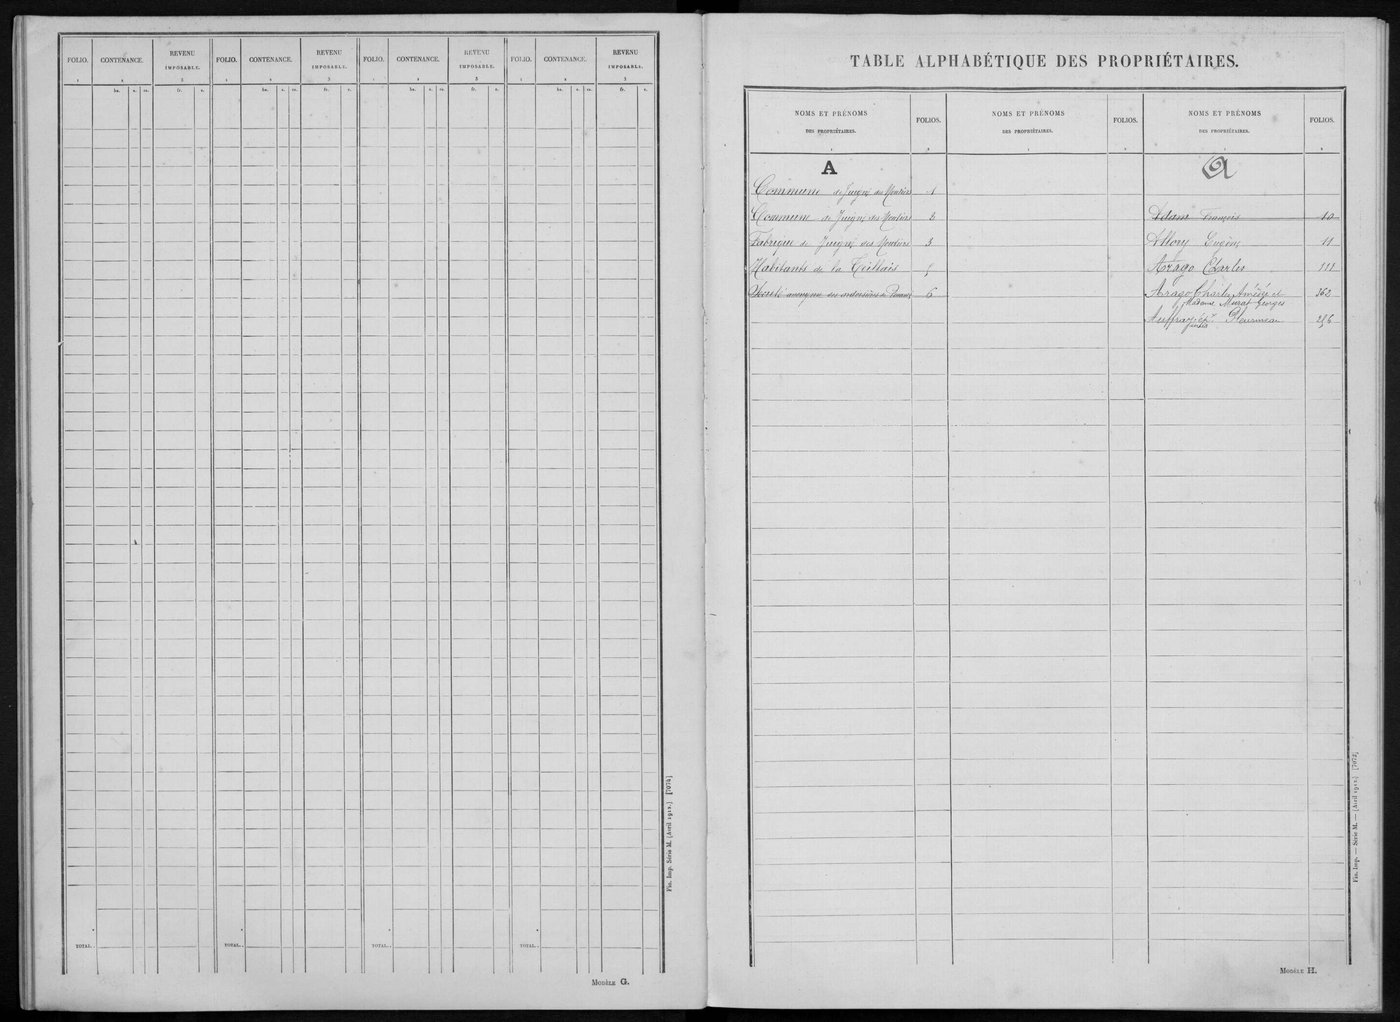 FOLIO. CONTENANCE. REVENU IMPOSABLE. FOLIO. CONTENANCE. REVENU IMPOSABLE. FOLIO. CONTENANCE. REVENU IMPOSABLE. FOLIO. CONTENANCE. REVENU IMPOSABLE.
1 2 3 1 2 3 1 2 3 1 2 3
ha. a. ca. fr. c. ha. a. ca. fr. c. ha. a. ca. fr. c. ha. a. ca. fr. c.
TOTAL. . TOTAL. . TOTAL. . TOTAL. .
Fin. Imp. Série M. (Avril 1912.) [7074]
MODÈLE G.
TABLE ALPHABÉTIQUE DES PROPRIÉTAIRES.
NOMS ET PRÉNOMS DES PROPRIÉTAIRES. FOLIOS. NOMS ET PRÉNOMS DES PROPRIÉTAIRES. FOLIOS. NOMS ET PRÉNOMS DES PROPRIÉTAIRES. FOLIOS.
1 2 1 2 1 2
A
Commune de Juigné des Moutiers 1
Commune de Juigné des Moutiers 2
Fabrique de Juigné des Moutiers 3
Habitants de la 5
Société anonyme des ardoisières de 6
a
Adam François 10
Allory Eugène 11
Arago Charles 111
Arago Charles Amédée et 362
Madame Murat Georges
Auffray 286
Fin. Imp. — Série M. — (Avril 1912.) [7072]
MODÈLE H.